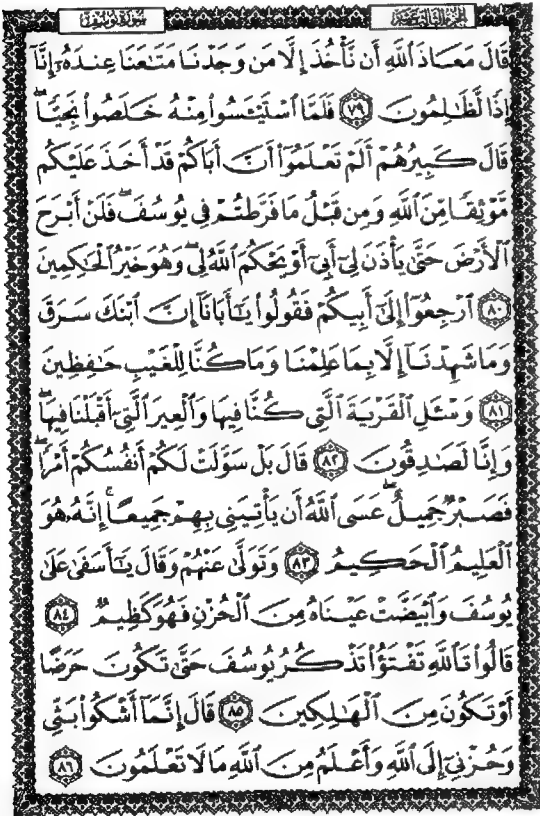 سُورَةُ يُوسُفَ
الجزء الثالث عشر
قَالَ مَعَاذَ ٱللَّهِ أَن نَّأْخُذَ إِلَّا مَن وَجَدْنَا مَتَٰعَنَا عِندَهُۥٓ إِنَّآ
إِذًا لَّظَٰلِمُونَ ٧٩ فَلَمَّا ٱسْتَيْـَٔسُوا۟ مِنْهُ خَلَصُوا۟ نَجِيًّا ۖ
قَالَ كَبِيرُهُمْ أَلَمْ تَعْلَمُوٓا۟ أَنَّ أَبَاكُمْ قَدْ أَخَذَ عَلَيْكُم
مَّوْثِقًا مِّنَ ٱللَّهِ وَمِن قَبْلُ مَا فَرَّطتُمْ فِى يُوسُفَ ۖ فَلَنْ أَبْرَحَ
ٱلْأَرْضَ حَتَّىٰ يَأْذَنَ لِىٓ أَبِىٓ أَوْ يَحْكُمَ ٱللَّهُ لِى ۖ وَهُوَ خَيْرُ ٱلْحَٰكِمِينَ
٨٠ ٱرْجِعُوٓا۟ إِلَىٰٓ أَبِيكُمْ فَقُولُوا۟ يَٰٓأَبَانَآ إِنَّ ٱبْنَكَ سَرَقَ
وَمَا شَهِدْنَآ إِلَّا بِمَا عَلِمْنَا وَمَا كُنَّا لِلْغَيْبِ حَٰفِظِينَ
٨١ وَسْـَٔلِ ٱلْقَرْيَةَ ٱلَّتِى كُنَّا فِيهَا وَٱلْعِيرَ ٱلَّتِىٓ أَقْبَلْنَا فِيهَا ۖ
وَإِنَّا لَصَٰدِقُونَ ٨٢ قَالَ بَلْ سَوَّلَتْ لَكُمْ أَنفُسُكُمْ أَمْرًا ۖ
فَصَبْرٌ جَمِيلٌ ۖ عَسَى ٱللَّهُ أَن يَأْتِيَنِى بِهِمْ جَمِيعًا ۚ إِنَّهُۥ هُوَ
ٱلْعَلِيمُ ٱلْحَكِيمُ ٨٣ وَتَوَلَّىٰ عَنْهُمْ وَقَالَ يَٰٓأَسَفَىٰ عَلَىٰ
يُوسُفَ وَٱبْيَضَّتْ عَيْنَاهُ مِنَ ٱلْحُزْنِ فَهُوَ كَظِيمٌ ٨٤
قَالُوا۟ تَٱللَّهِ تَفْتَؤُا۟ تَذْكُرُ يُوسُفَ حَتَّىٰ تَكُونَ حَرَضًا
أَوْ تَكُونَ مِنَ ٱلْهَٰلِكِينَ ٨٥ قَالَ إِنَّمَآ أَشْكُوا۟ بَثِّى
وَحُزْنِىٓ إِلَى ٱللَّهِ وَأَعْلَمُ مِنَ ٱللَّهِ مَا لَا تَعْلَمُونَ ٨٦